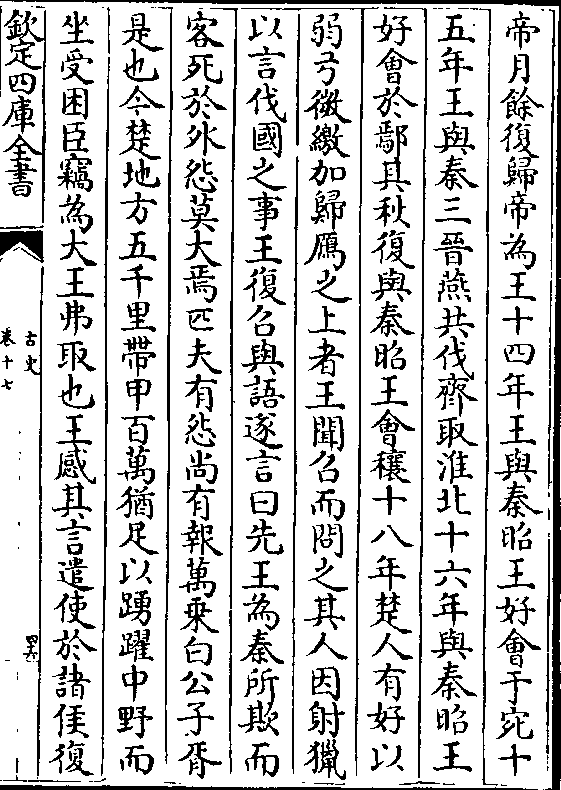 帝月餘復歸帝為王十四年王與秦昭王好會于宛十
五年王與秦三晉燕共伐齊取淮北十六年與秦昭王
好會於鄢其秋復與秦昭王會穰十八年楚人有好以
弱弓微繳加歸鴈之上者王聞召而問之其人因射獵
以言伐國之事王復召與語遂言曰先王為秦所欺而
客死於外怨莫大焉匹夫有怨尚有報萬乗白公子胥
是也今楚地方五千里帶甲百萬猶足以踴躍中野而
坐受困臣竊為大王弗取也王感其言遣使於諸侯復
欽定四庫全書
古史
卷十七
四六